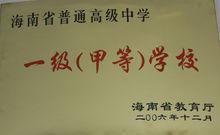 海南省普通高级中学
一级(甲等)学校
海南省教育厅
二00六年十二月